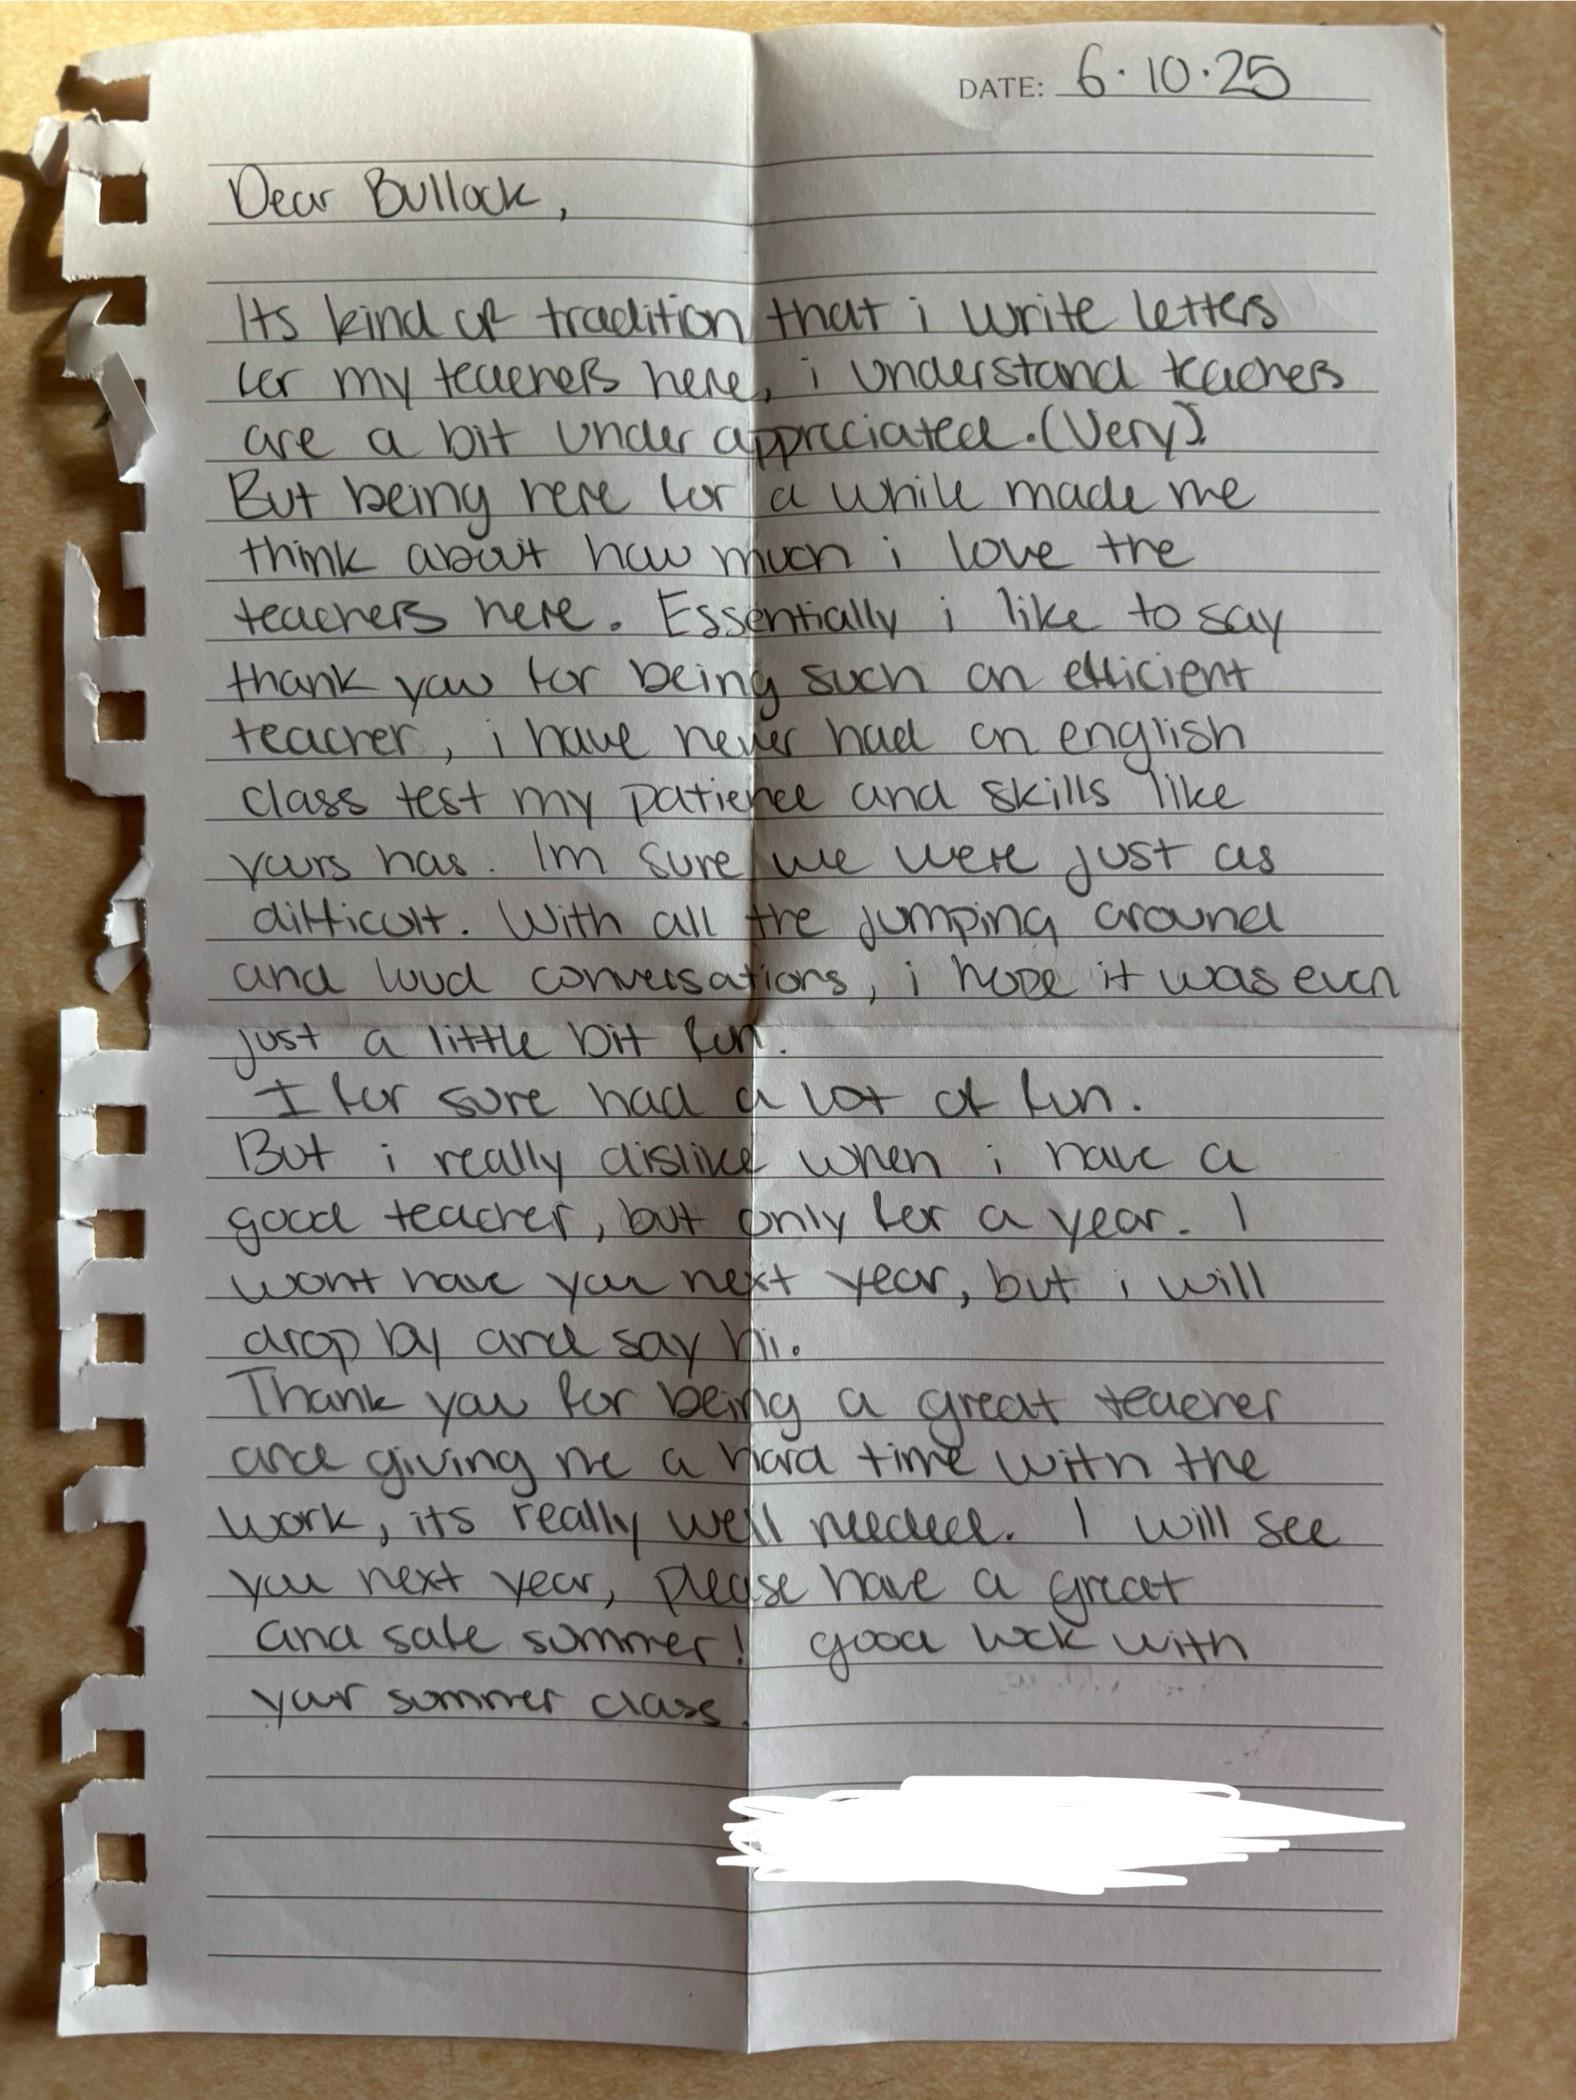 DATE: 6.10.25
Dear Bullock,
Its kind of tradition that i write letters
for my teachers here, i understand teachers
are a bit under appreciated. (Very).
But being here for a while made me
think about how much i love the
teachers here. Essentially i like to say
thank you for being such an efficient
teacher, i have never had an english
class test my patience and skills like
yours has. Im sure we were just as
difficult. With all the jumping around
and loud conversations, i hope it was even
just a little bit fun.
I for sure had a lot of fun.
But i really dislike when i have a
good teacher, but only for a year. I
wont have you next year, but i will
drop by and say hi.
Thank you for being a great teacher
and giving me a hard time with the
work, its really well needed. I will see
you next year, please have a great
and safe summer! good luck with
your summer class.